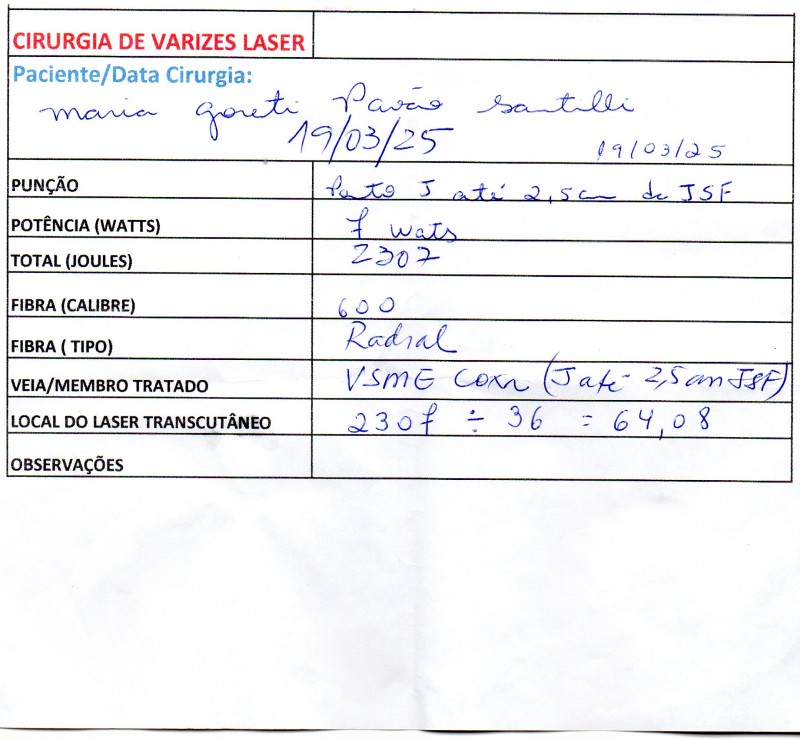 CIRURGIA DE VARIZES LASER
Paciente/Data Cirurgia:
Maria Goreti Pavão Santilli
19/03/25
19/03/25
PUNÇÃO Ponto J até 2,5cm da JSF
POTÊNCIA (WATTS) 7 wats
TOTAL (JOULES) 2307
FIBRA (CALIBRE) 600
FIBRA ( TIPO) Radial
VEIA/MEMBRO TRATADO VSME Coxa (J até 2,5cm JSF)
LOCAL DO LASER TRANSCUTÂNEO 2307 ÷ 36 = 64,08
OBSERVAÇÕES